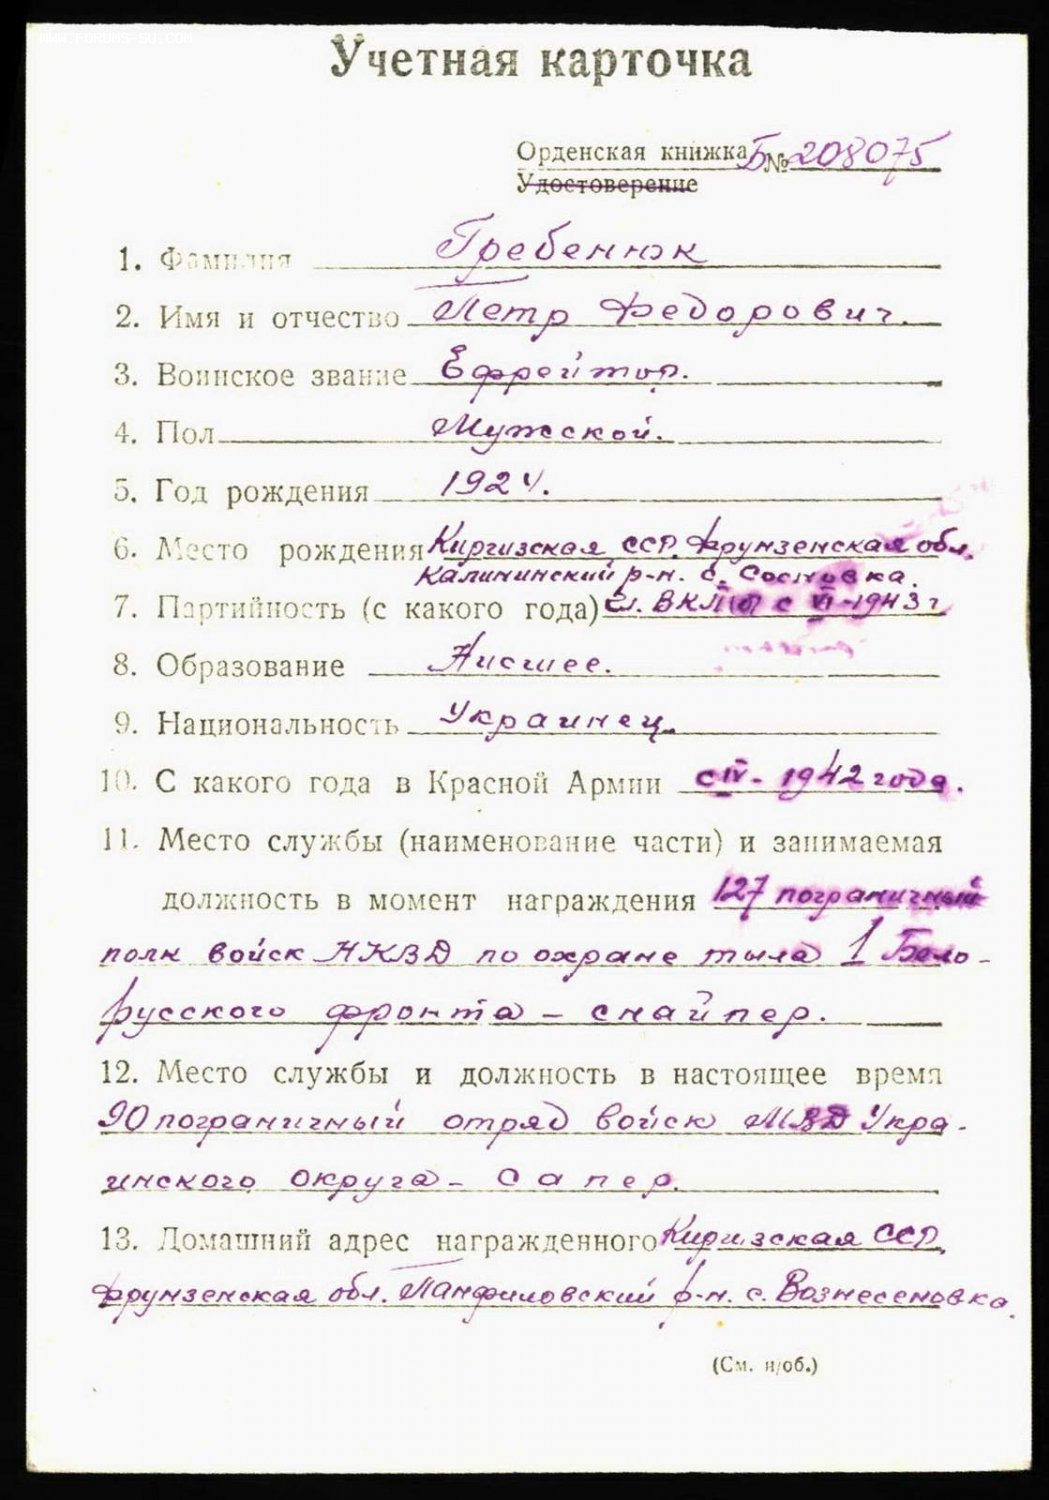 WWW.FORUMS-SU.COM
Учетная карточка
Орденская книжка Б № 208075
Удостоверение
1. Фамилия Гребенюк
2. Имя и отчество Петр Федорович.
3. Воинское звание Ефрейтор.
4. Пол Мужской.
5. Год рождения 1924.
6. Место рождения Киргизская ССР. Фрунзенская обл.
Калининский р-н. с. Сосновка.
7. Партийность (с какого года) Чл. ВКП(б) с VI-1943 г
8. Образование Низшее.
9. Национальность Украинец.
10. С какого года в Красной Армии с IV - 1942 года.
11. Место службы (наименование части) и занимаемая
должность в момент награждения 127 пограничный
полк войск НКВД по охране тыла 1 Бело-
русского фронта – снайпер.
12. Место службы и должность в настоящее время
90 пограничный отряд войск МВД Укра-
инского округа – сапер.
13. Домашний адрес награжденного Киргизская ССР,
Фрунзенская обл. Панфиловский р-н. с. Вознесеновка.
(См. н/об.)